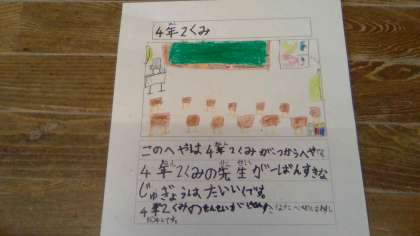 4年2くみ
このへやは4年2くみがつかうへやで
4年2くみの先生が一ばんすきな
じゅぎょうはたいいくです。
4年2くみのせんせいが